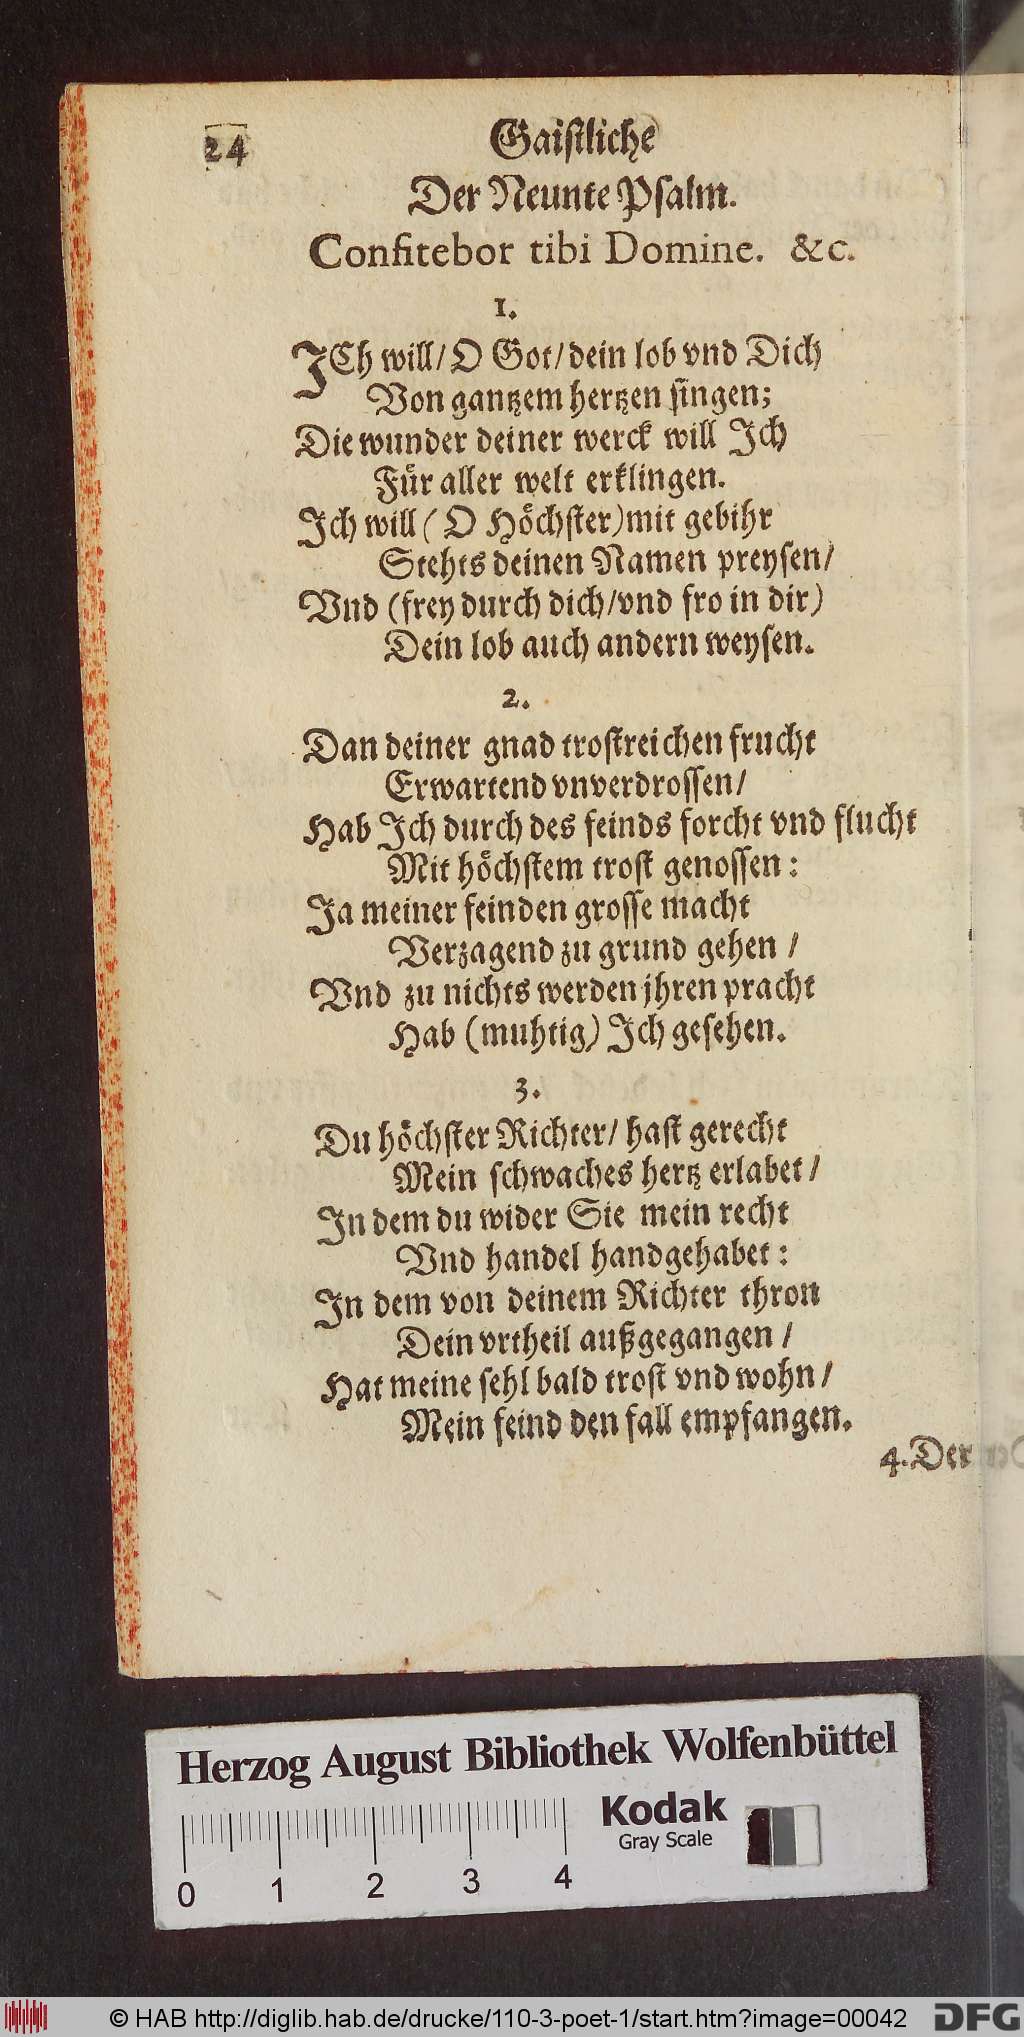 24
Gaistliche
Der Neunte Psalm.
Confitebor tibi Domine. &c.
1.
ICh will/ O Got/ dein lob vnd Dich
Von gantzem hertzen singen;
Die wunder deiner werck will Ich
Für aller welt erklingen.
Ich will ( O Höchster) mit gebihr
Stehts deinen Namen preysen/
Vnd (frey durch dich/ vnd fro in dir)
Dein lob auch andern weysen.
2.
Dan deiner gnad trostreichen frucht
Erwartend vnverdrossen/
Hab Ich durch des feinds forcht vnd flucht
Mit höchstem trost genossen:
Ja meiner feinden grosse macht
Verzagend zu grund gehen /
Vnd zu nichts werden jhren pracht
Hab (muhtig) Ich gesehen.
3.
Du höchster Richter/ hast gerecht
Mein schwaches hertz erlabet/
In dem du wider Sie mein recht
Vnd handel handgehabet:
In dem von deinem Richter thron
Dein vrtheil außgegangen /
Hat meine sehl bald trost vnd wohn/
Mein feind den fall empfangen.
4. Der
Herzog August Bibliothek Wolfenbüttel
Kodak
Gray Scale
0 1 2 3 4
© HAB http://diglib.hab.de/drucke/110-3-poet-1/start.htm?image=00042
DFG